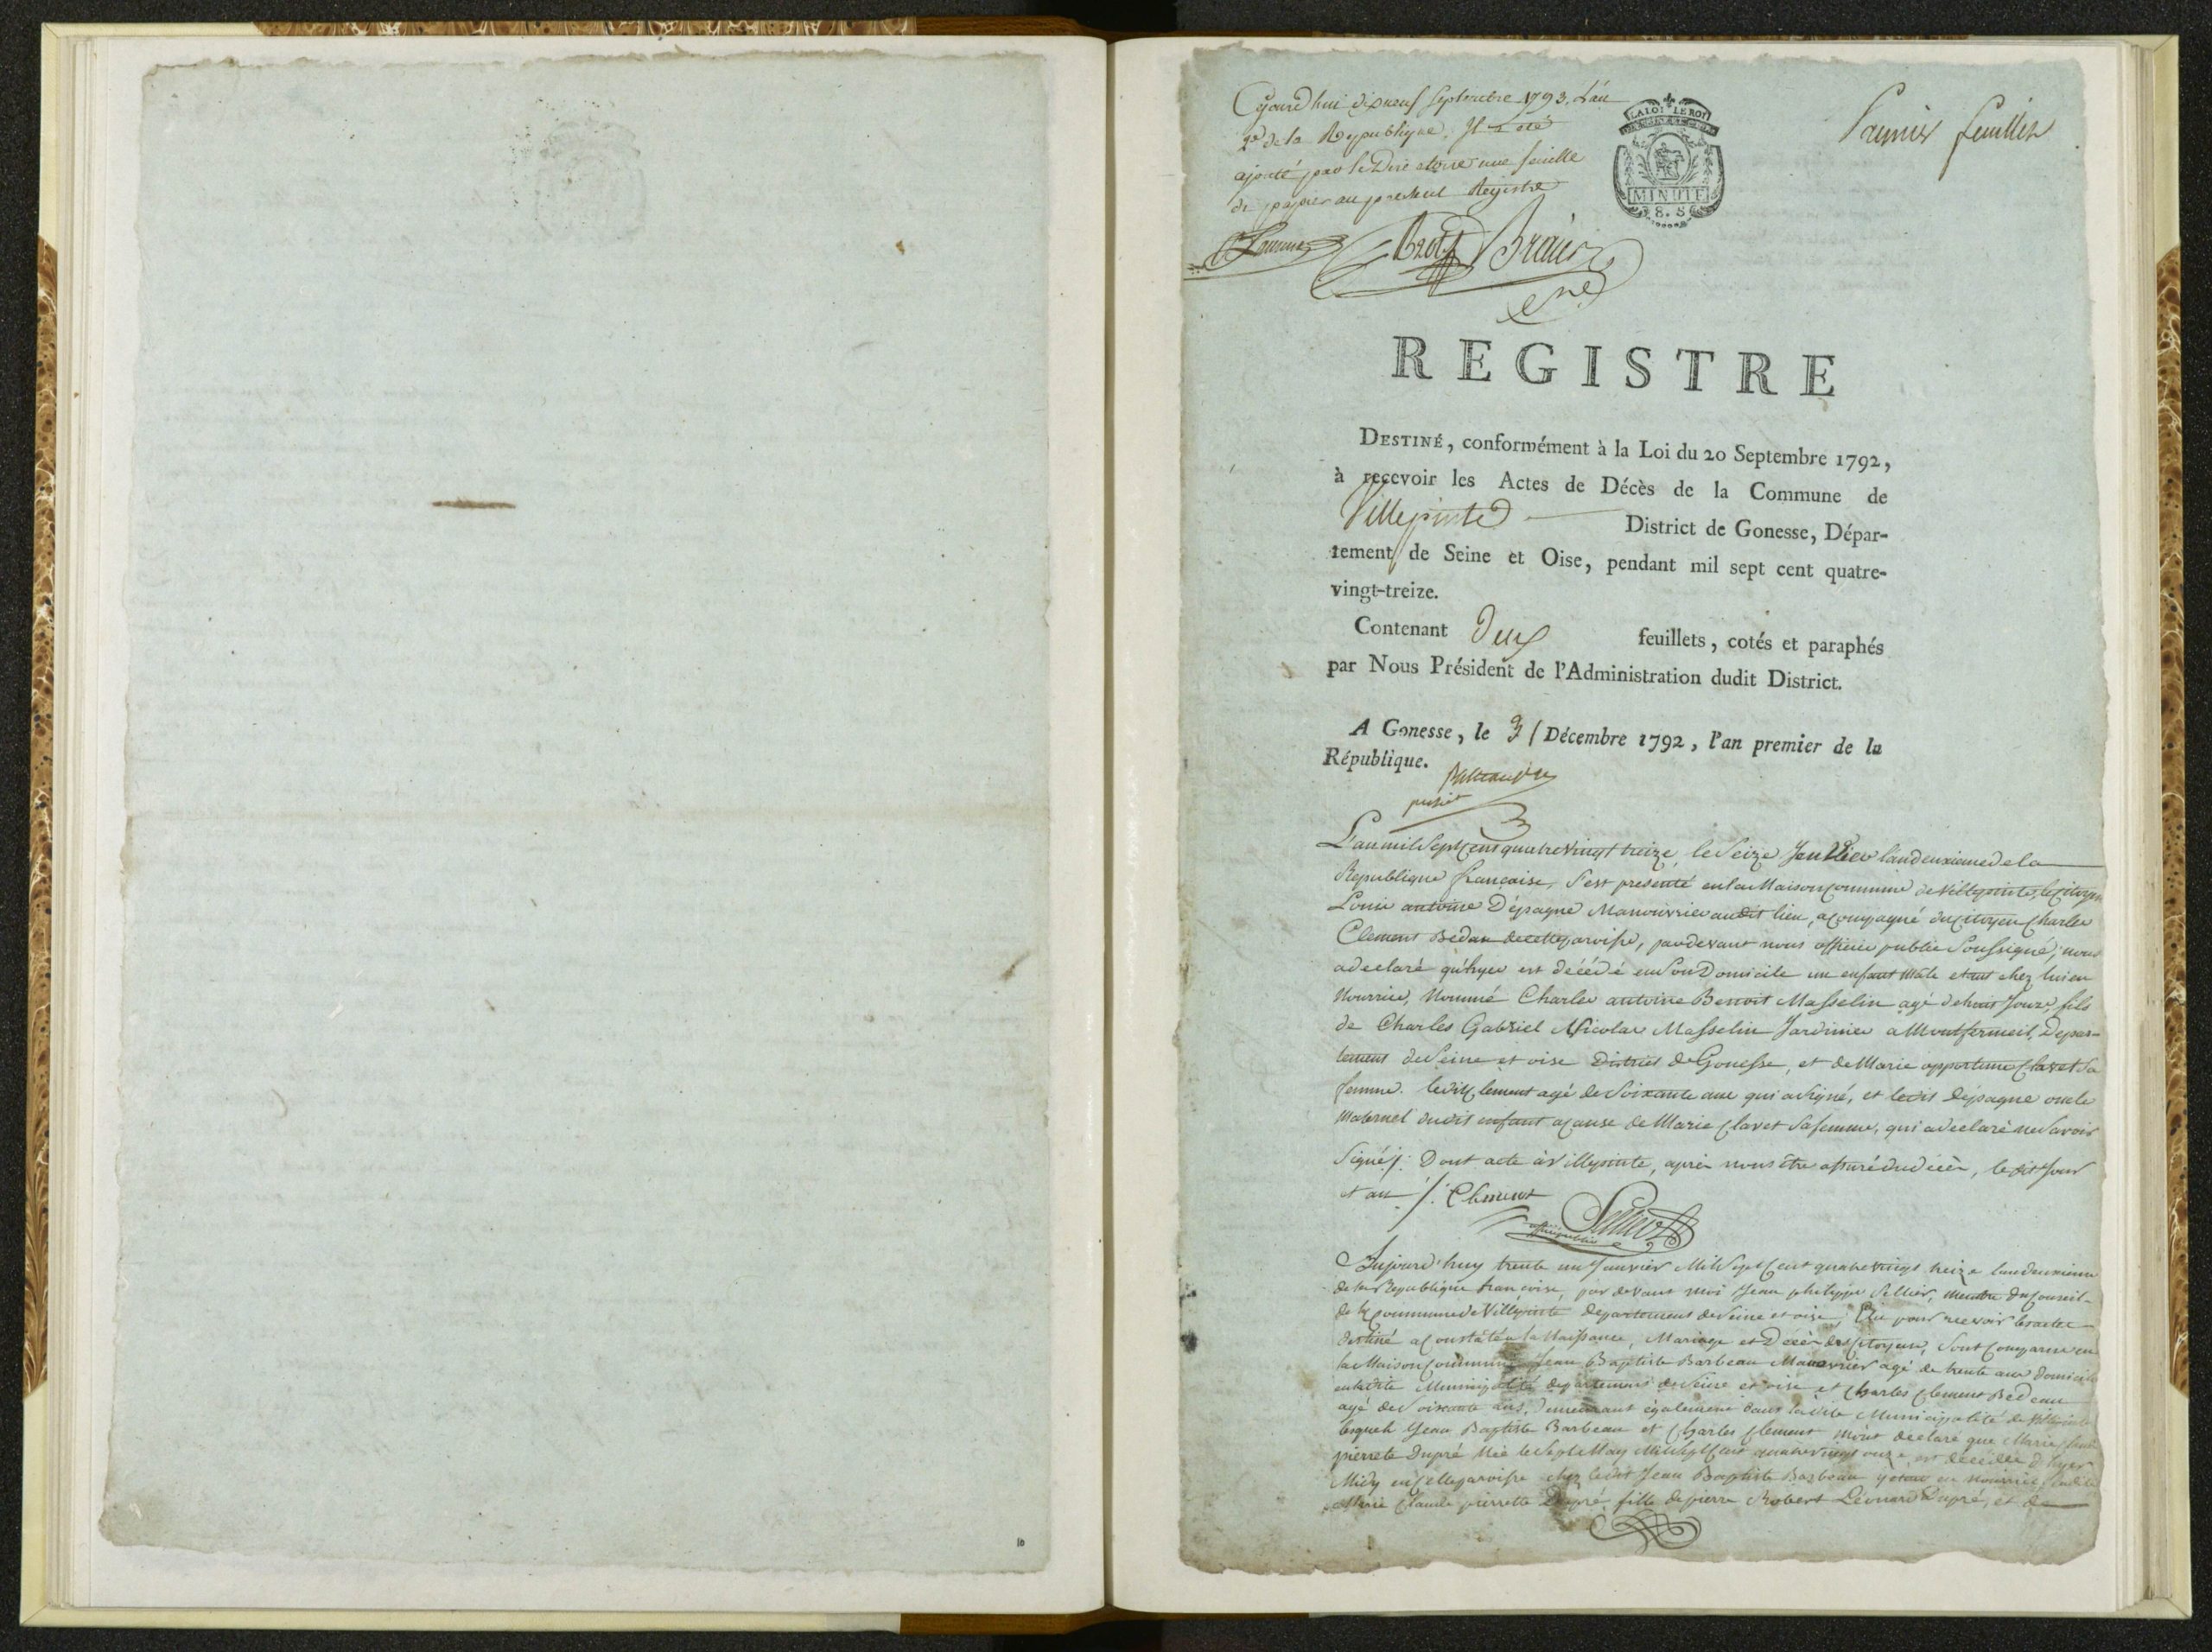 Cejourd'hui dixneuf Septembre 1793. L'an
2e de la Republique. Il a eté
ajouté par le Directoire une feuille
de papier au present Registre
LA LOI LE ROI
MINUTE
8. S
Premier feuillet
REGISTRE
DESTINÉ, conformément à la Loi du 20 Septembre 1792,
à recevoir les Actes de Décès de la Commune de
Villepinte District de Gonesse, Dépar-
tement de Seine et Oise, pendant mil sept cent quatre-
vingt-treize.
Contenant Deux feuillets, cotés et paraphés
par Nous Président de l'Administration dudit District.
A Gonesse, le 31 Décembre 1792, l'an premier de la
République.
L'an mil Sept Cens quatre Vingt treize, le Seize Janvier l'an deuxieme de la
Republique française, s'est presenté en la Maison Commune de Villepinte, le Citoyen
Louis antoine D'épagne Manouvrier audit lieu, acompagné du Citoyen Charles
Clement Bedau de cette paroisse, pardevant nous officier public Soussigné, nous
a declaré qu'hyer est décédé en Son Domicile un enfant Mâle etant chez lui en
Nourrice, Nommé Charles antoine Benoit Masselin agé de huit Jours, fils
de Charles Gabriel Nicolas Masselin Jardinier a Montfermeil, Depar-
tement de Seine et oise District de Gonesse, et de Marie opportune Clavet Sa
femme. ledit Clement agé de Soixante ans qui a Signé, et ledit D'épagne oncle
Maternel dudit enfant a cause de Marie Clavet Sa femme, qui a declaré ne Savoir
Signé /. Dont acte à Villepinte, après nous être assuré du décès, ledit Jour
et an /. Clement
officier public Sellier
Aujourd'huy trente un Janvier Mil Sept Cent quatre vingt treize l'an deuxieme
de la Republique françoise, par devant moi Jean philippe Sellier, membre du Conseil
de la Commune de Villepinte departement de Seine et oise, Elu pour recevoir les actes
destiné a Constaté la Naissance, Mariage et Décès des Citoyens, Sont Comparus en
la Maison Commune Jean Baptiste Barbeau Manouvrier agé de trente ans domicilié
en ladite Municipalité departement de Seine et oise et Charles Clement Bedeau
agé de Soixante ans, demeurant également dans ladite Municipalité de Villepinte
lesquels Jean Baptiste Barbeau et Charles Clement m'ont declaré que Marie Claude
pierrete Dupré Née le Sept May Mil Sept Cent quatre vingt onze, est décédée d'hyer
Midy en Cette paroisse chez ledit Jean Baptiste Barbeau y etant en Nourrice, ladite
Marie Claude pierrette Dupré, fille de pierre Robert Léonard Dupré, et de
10